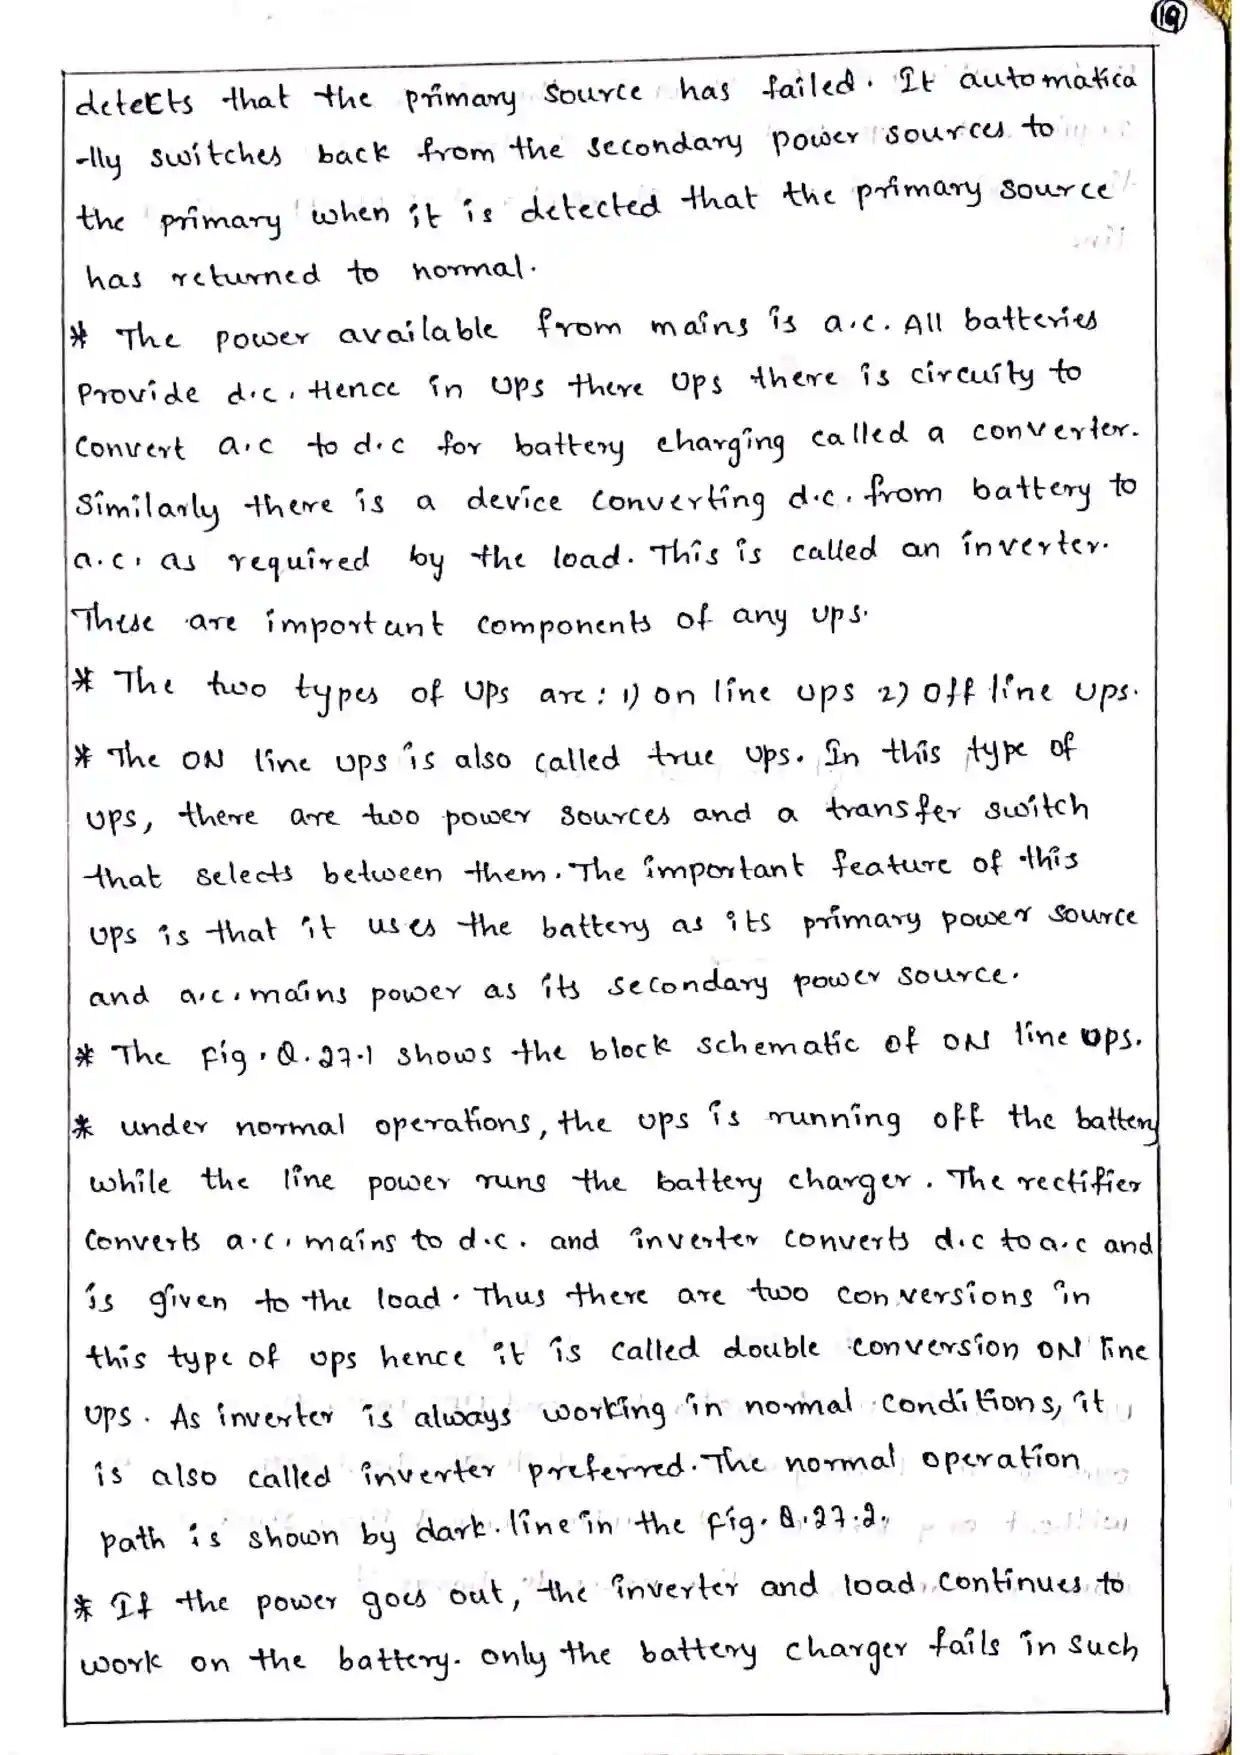 19
detects that the primary source has failed. It automatica
-lly switches back from the secondary power sources to
the primary when it is detected that the primary source
has returned to normal.
* The power available from mains is a.c. All batteries
Provide d.c. Hence in ups there ups there is circuity to
convert a.c to d.c for battery charging called a converter.
Similarly there is a device converting d.c. from battery to
a.c. as required by the load. This is called an inverter.
These are important components of any ups.
* The two types of ups are: 1) on line ups 2) off line ups.
* The ON line ups is also called true ups. In this type of
ups, there are two power sources and a transfer switch
that selects between them. The important feature of this
ups is that it uses the battery as its primary power source
and a.c. mains power as its secondary power source.
* The fig. Q.27.1 shows the block schematic of ON line ups.
* under normal operations, the ups is running off the battery
while the line power runs the battery charger. The rectifier
converts a.c. mains to d.c. and inverter converts d.c to a.c and
is given to the load. Thus there are two conversions in
this type of ups hence it is called double conversion ON line
ups. As inverter is always working in normal conditions, it
is also called inverter preferred. The normal operation
path is shown by dark line in the fig. Q.27.2.
* If the power goes out, the inverter and load continues to
work on the battery. only the battery charger fails in such